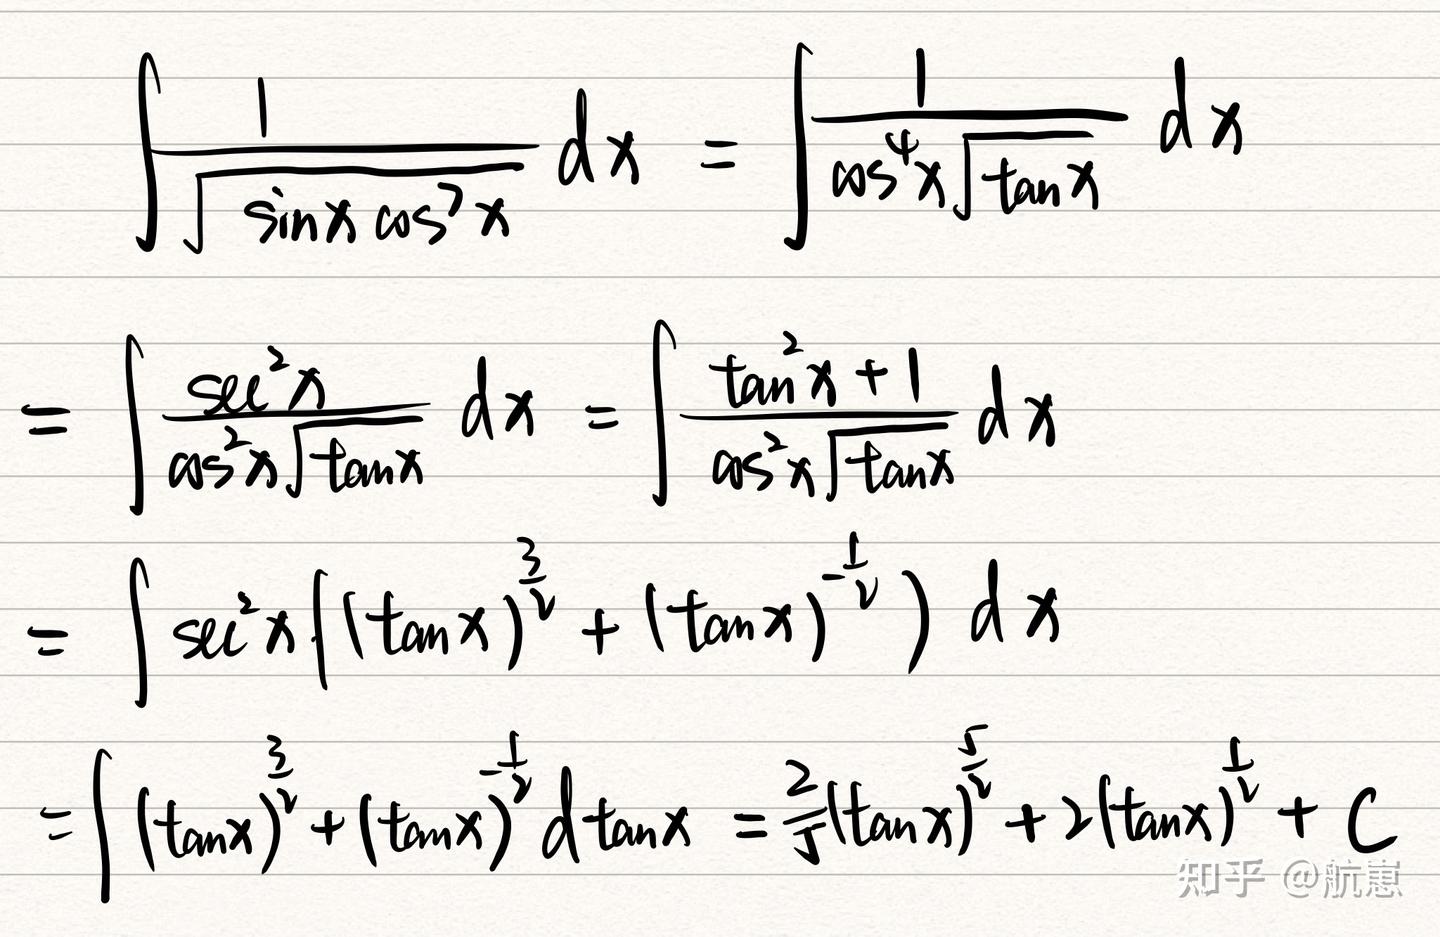 ∫ 1/√(sin x cos⁷ x) dx = ∫ 1/(cos⁴x √(tan x)) dx
= ∫ sec²x/(cos²x √(tan x)) dx = ∫ (tan²x + 1)/(cos²x √(tan x)) dx
= ∫ sec²x ((tan x)^(3/2) + (tan x)^(-1/2)) dx
= ∫ (tan x)^(3/2) + (tan x)^(-1/2) d tan x = 2/5 (tan x)^(5/2) + 2(tan x)^(1/2) + C
知乎 @航崽